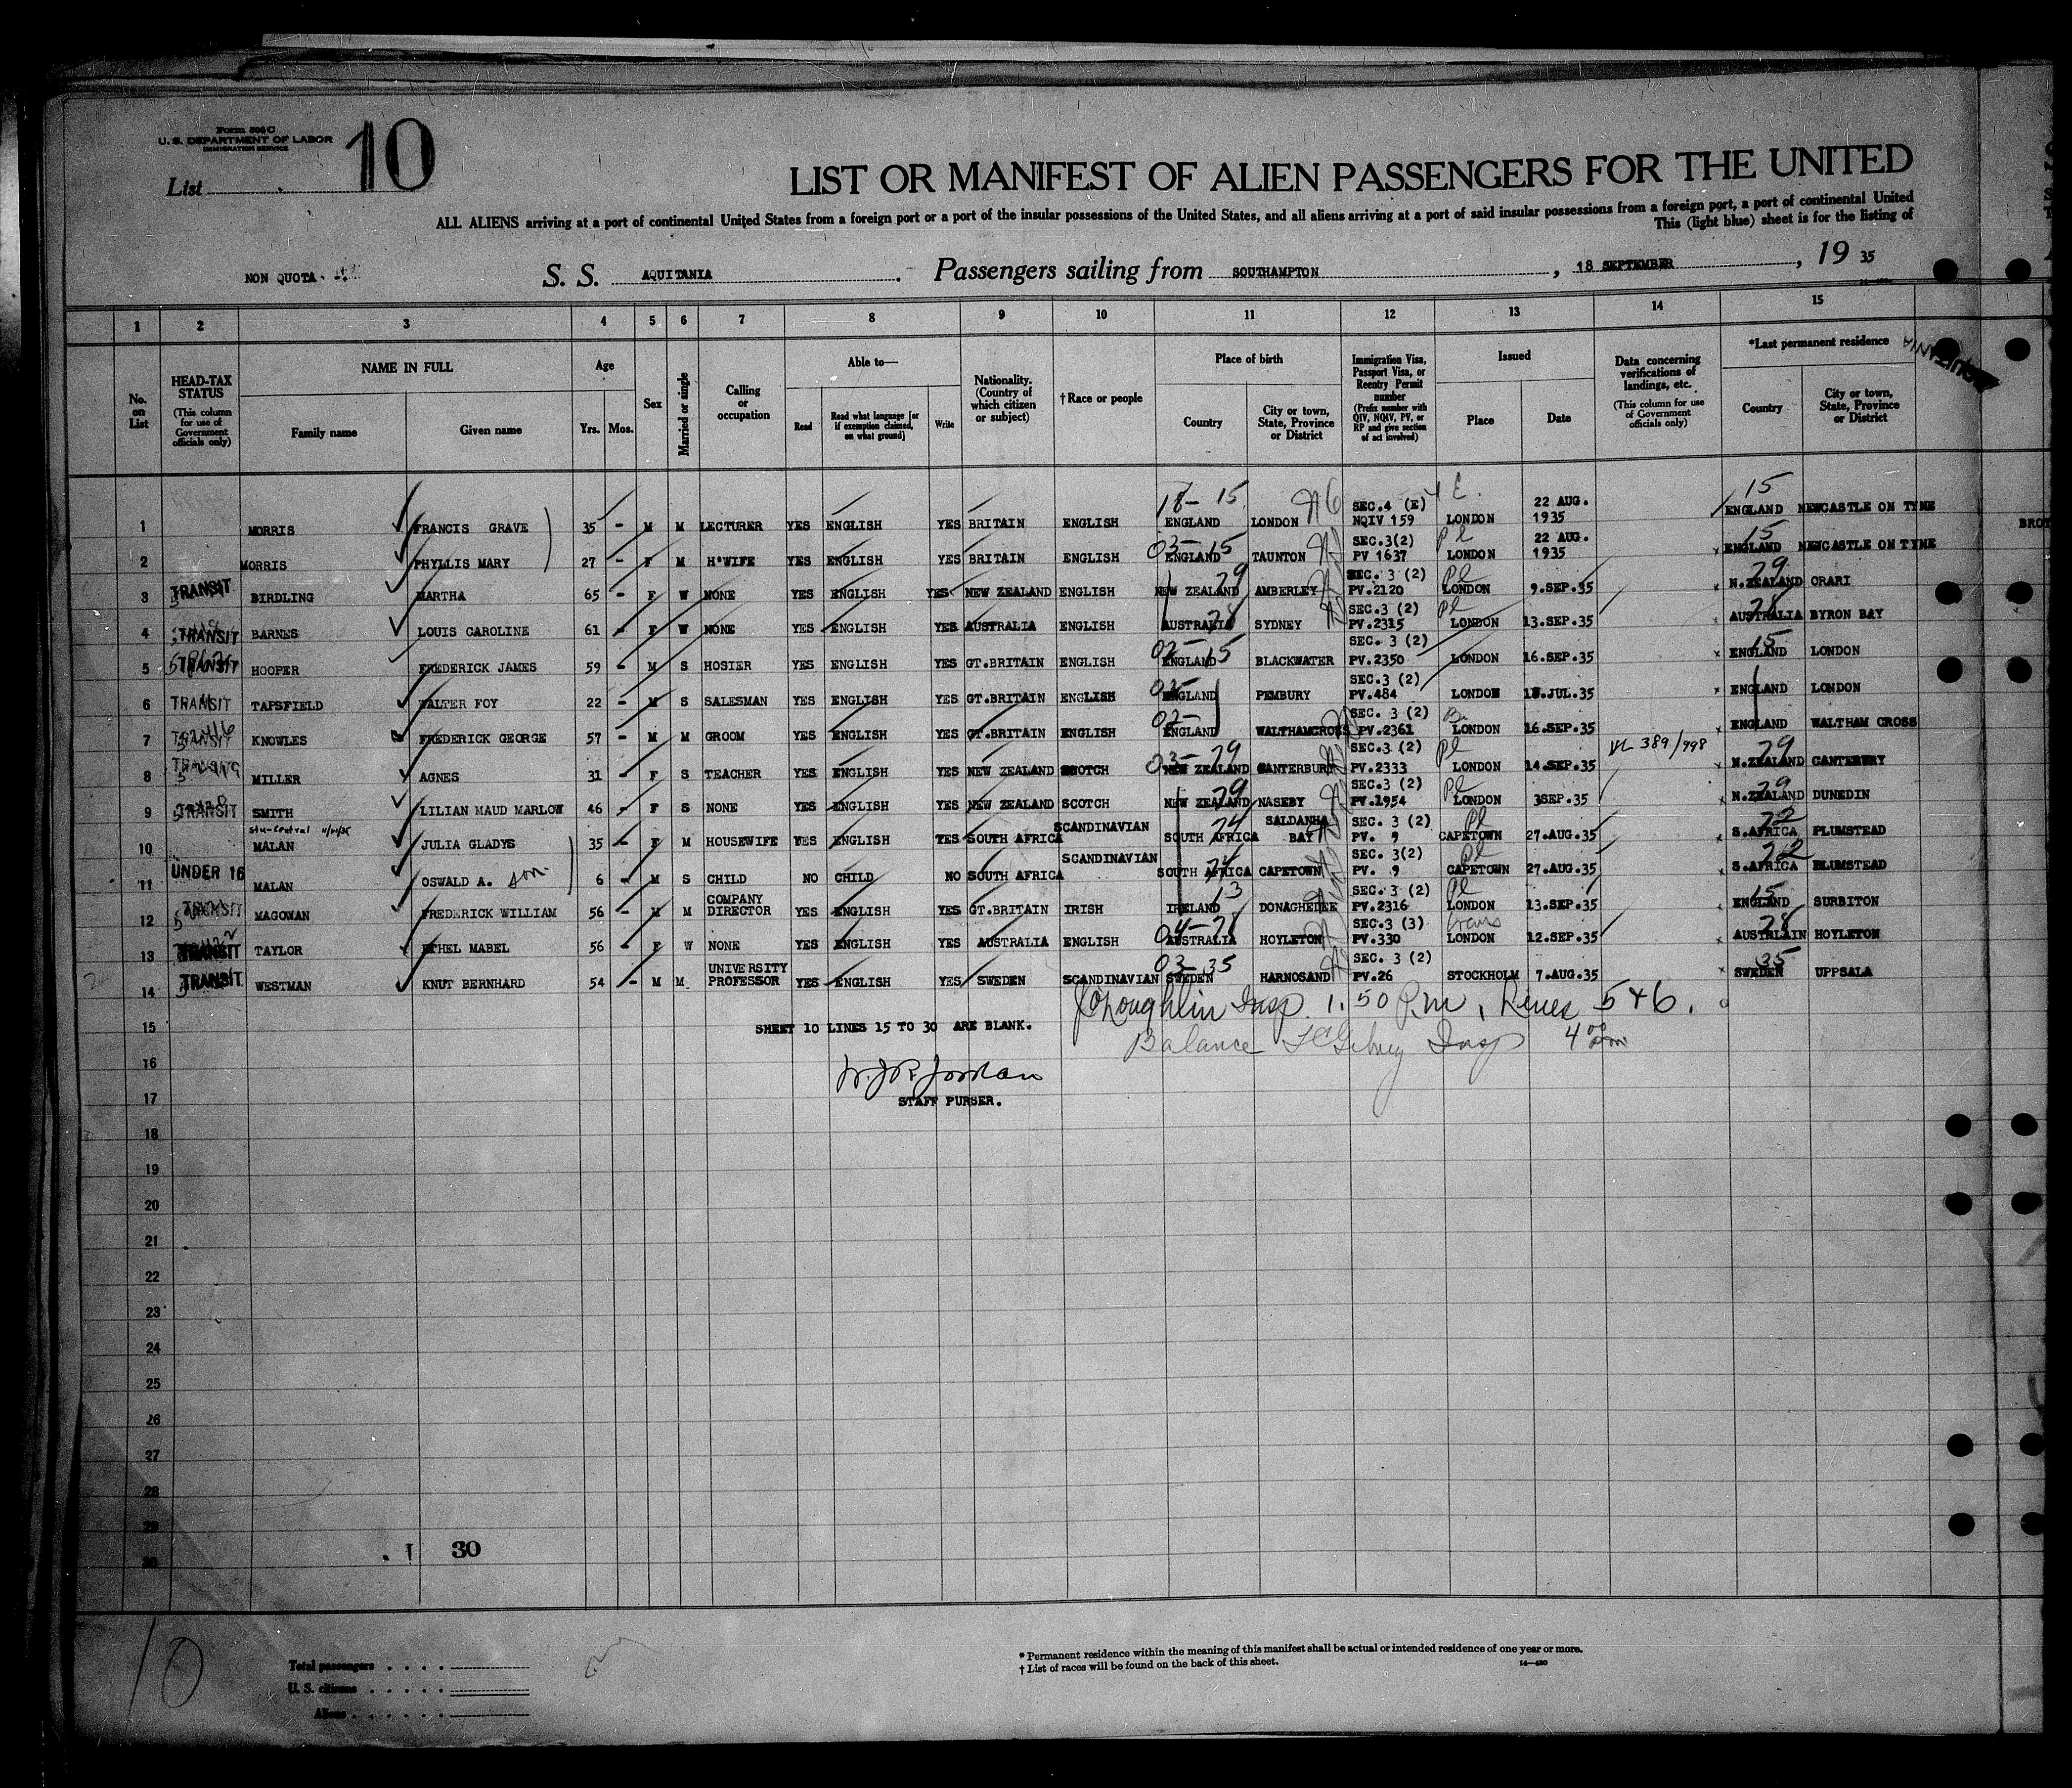 Form 500 C
U. S. DEPARTMENT OF LABOR
IMMIGRATION SERVICE
List 10
LIST OR MANIFEST OF ALIEN PASSENGERS FOR THE UNITED
ALL ALIENS arriving at a port of continental United States from a foreign port or a port of the insular possessions of the United States, and all aliens arriving at a port of said insular possessions from a foreign port, a port of continental United
This (light blue) sheet is for the listing of
NON QUOTA S. S. AQUITANIA. Passengers sailing from SOUTHAMPTON, 18 SEPTEMBER, 19 35
1 2 3 4 5 6 7 8 9 10 11 12 13 14 15
No. on List
HEAD-TAX STATUS (This column for use of Government officials only)
NAME IN FULL Family name Given name
Age Yrs. Mos.
Sex
Married or single
Calling or occupation
Able to— Read Read what language [or if exemption claimed, on what ground] Write
Nationality. (Country of which citizen or subject)
†Race or people
Place of birth Country City or town, State, Province or District
Immigration Visa, Passport Visa, or Reentry Permit number (Prefix number with QIV, NQIV, PV, or RP and give section of act involved)
Issued Place Date
Data concerning verifications of landings, etc. (This column for use of Government officials only)
*Last permanent residence Country City or town, State, Province or District
AQUITANIA
1 MORRIS FRANCIS GRAVE 35 - M M LECTURER YES ENGLISH YES BRITAIN ENGLISH 18-15 ENGLAND LONDON SEC.4 (E) NQIV 159 4 E. LONDON 22 AUG. 1935 15 ENGLAND NEWCASTLE ON TYNE
2 MORRIS PHYLLIS MARY 27 - F M H'WIFE YES ENGLISH YES BRITAIN ENGLISH 03-15 ENGLAND TAUNTON SEC.3(2) PV 1637 Pl LONDON 22 AUG. 1935 15 ENGLAND NEWCASTLE ON TYNE
3 TRANSIT BIRDLING MARTHA 65 - F W NONE YES ENGLISH YES NEW ZEALAND ENGLISH 29 NEW ZEALAND AMBERLEY SEC. 3 (2) PV.2120 Pl LONDON 9.SEP.35 29 N.ZEALAND ORARI
4 TRANSIT BARNES LOUIS CAROLINE 61 - F W NONE YES ENGLISH YES AUSTRALIA ENGLISH 28 AUSTRALIA SYDNEY SEC.3 (2) PV.2315 Pl LONDON 13.SEP.35 28 AUSTRALIA BYRON BAY
5 TRANSIT HOOPER FREDERICK JAMES 59 - M S HOSIER YES ENGLISH YES GT.BRITAIN ENGLISH 02-15 ENGLAND BLACKWATER SEC. 3 (2) PV.2350 LONDON 16.SEP.35 15 ENGLAND LONDON
6 TRANSIT TAPSFIELD WALTER FOY 22 - M S SALESMAN YES ENGLISH YES GT.BRITAIN ENGLISH ENGLAND PEMBURY SEC.3 (2) PV.484 LONDON 18.JUL.35 ENGLAND LONDON
7 TRANSIT KNOWLES FREDERICK GEORGE 57 - M M GROOM YES ENGLISH YES GT.BRITAIN ENGLISH 02- ENGLAND WALTHAMCROSS SEC. 3 (2) PV.2361 LONDON 16.SEP.35 ENGLAND WALTHAM CROSS
8 TRANSIT MILLER AGNES 31 - F S TEACHER YES ENGLISH YES NEW ZEALAND SCOTCH 03-29 NEW ZEALAND CANTERBURY SEC.3 (2) PV.2333 Pl LONDON 14.SEP.35 VL 389/998 29 N.ZEALAND CANTERBURY
9 TRANSIT SMITH LILIAN MAUD MARLOW 46 - F S NONE YES ENGLISH YES NEW ZEALAND SCOTCH 29 NEW ZEALAND NASEBY SEC.3 (2) PV.1954 Pl LONDON 3SEP.35 29 N.ZEALAND DUNEDIN
10 MALAN JULIA GLADYS 35 - F M HOUSEWIFE YES ENGLISH YES SOUTH AFRICA SCANDINAVIAN SOUTH AFRICA SALDANHA BAY SEC. 3 (2) PV. 9 Pl CAPETOWN 27.AUG.35 S.AFRICA PLUMSTEAD
11 UNDER 16 MALAN OSWALD A. son 6 - M S CHILD NO CHILD NO SOUTH AFRICA SCANDINAVIAN SOUTH AFRICA CAPETOWN SEC. 3(2) PV. 9 Pl CAPETOWN 27.AUG.35 S.AFRICA PLUMSTEAD
12 TRANSIT MAGOWAN FREDERICK WILLIAM 56 - M M COMPANY DIRECTOR YES ENGLISH YES GT.BRITAIN IRISH 13 IRELAND DONAGHEDEE SEC. 3 (2) PV.2316 Pl LONDON 13.SEP.35 15 ENGLAND SURBITON
13 TRANSIT TAYLOR ETHEL MABEL 56 - F W NONE YES ENGLISH YES AUSTRALIA ENGLISH 04-28 AUSTRALIA HOYLETON SEC.3 (3) PV.330 trans LONDON 12.SEP.35 28 AUSTRLAIN HOYLETON
14 TRANSIT WESTMAN KNUT BERNHARD 54 - M M UNIVERSITY PROFESSOR YES ENGLISH YES SWEDEN SCANDINAVIAN 03-35 SWEDEN HARNOSAND SEC. 3 (2) PV.26 STOCKHOLM 7.AUG.35 35 SWEDEN UPPSALA
Insp. 1.50 P.m, Lines 5 & 6.
15 SHEET 10 LINES 15 TO 30 ARE BLANK.
Balance Insp 4 00 pm
16 W.J.R. Jordan
17 STAFF PURSER.
18
19
20
21
22
23
24
25
26
27
28
29
30
30
10
Total passengers
U. S. citizens
Aliens
* Permanent residence within the meaning of this manifest shall be actual or intended residence of one year or more.
† List of races will be found on the back of this sheet.
14—430